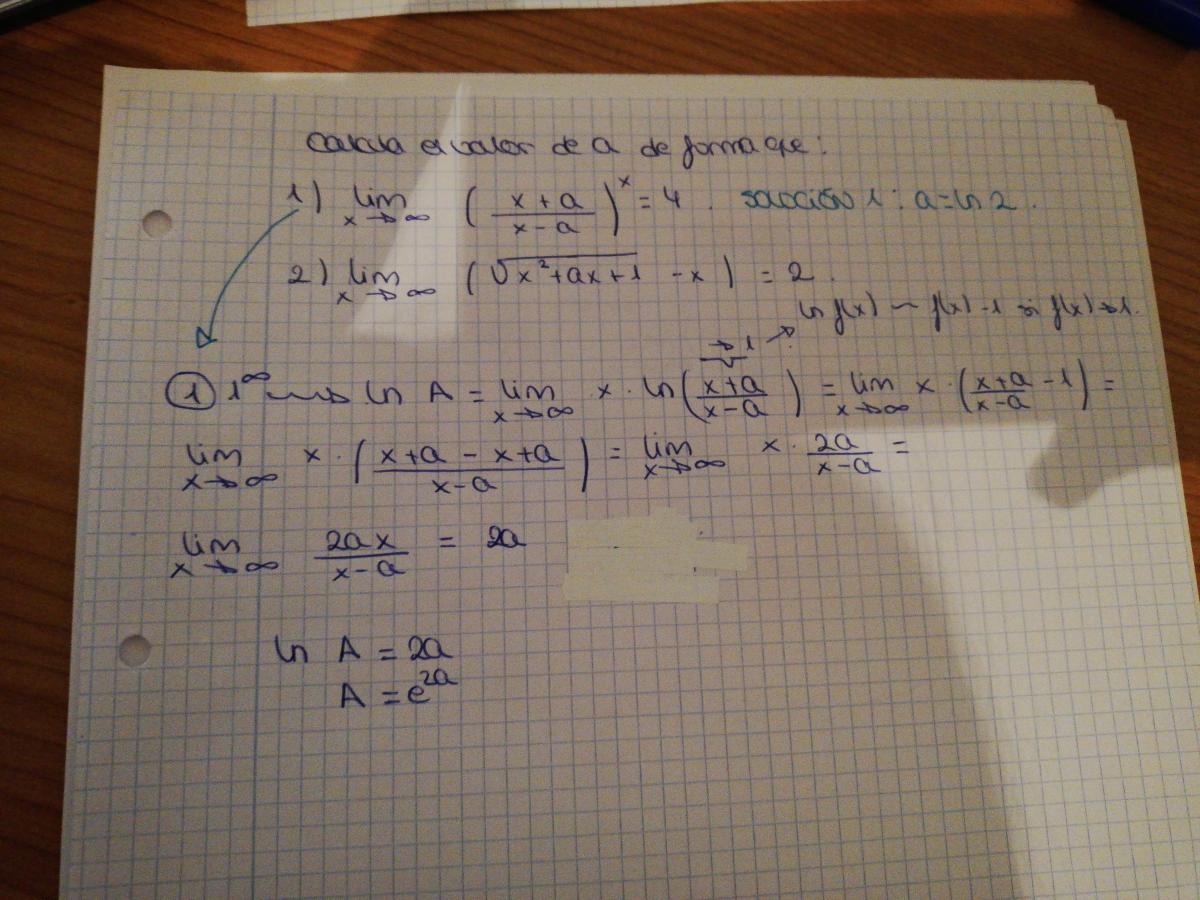 Calcula el valor de a de forma que:
1) lim x→∞ ( (x+a)/(x-a) )^x = 4. solución 1: a=ln 2.
2) lim x→∞ ( √(x²+ax+1) - x ) = 2.
ln f(x) ~ f(x)-1 si f(x)→1.
→1
① 1^∞ ⇝ ln A = lim x→∞ x · ln( (x+a)/(x-a) ) = lim x→∞ x · ( (x+a)/(x-a) - 1 ) =
lim x→∞ x · ( (x+a-x+a)/(x-a) ) = lim x→∞ x · 2a/(x-a) =
lim x→∞ 2ax/(x-a) = 2a
ln A = 2a
A = e^2a